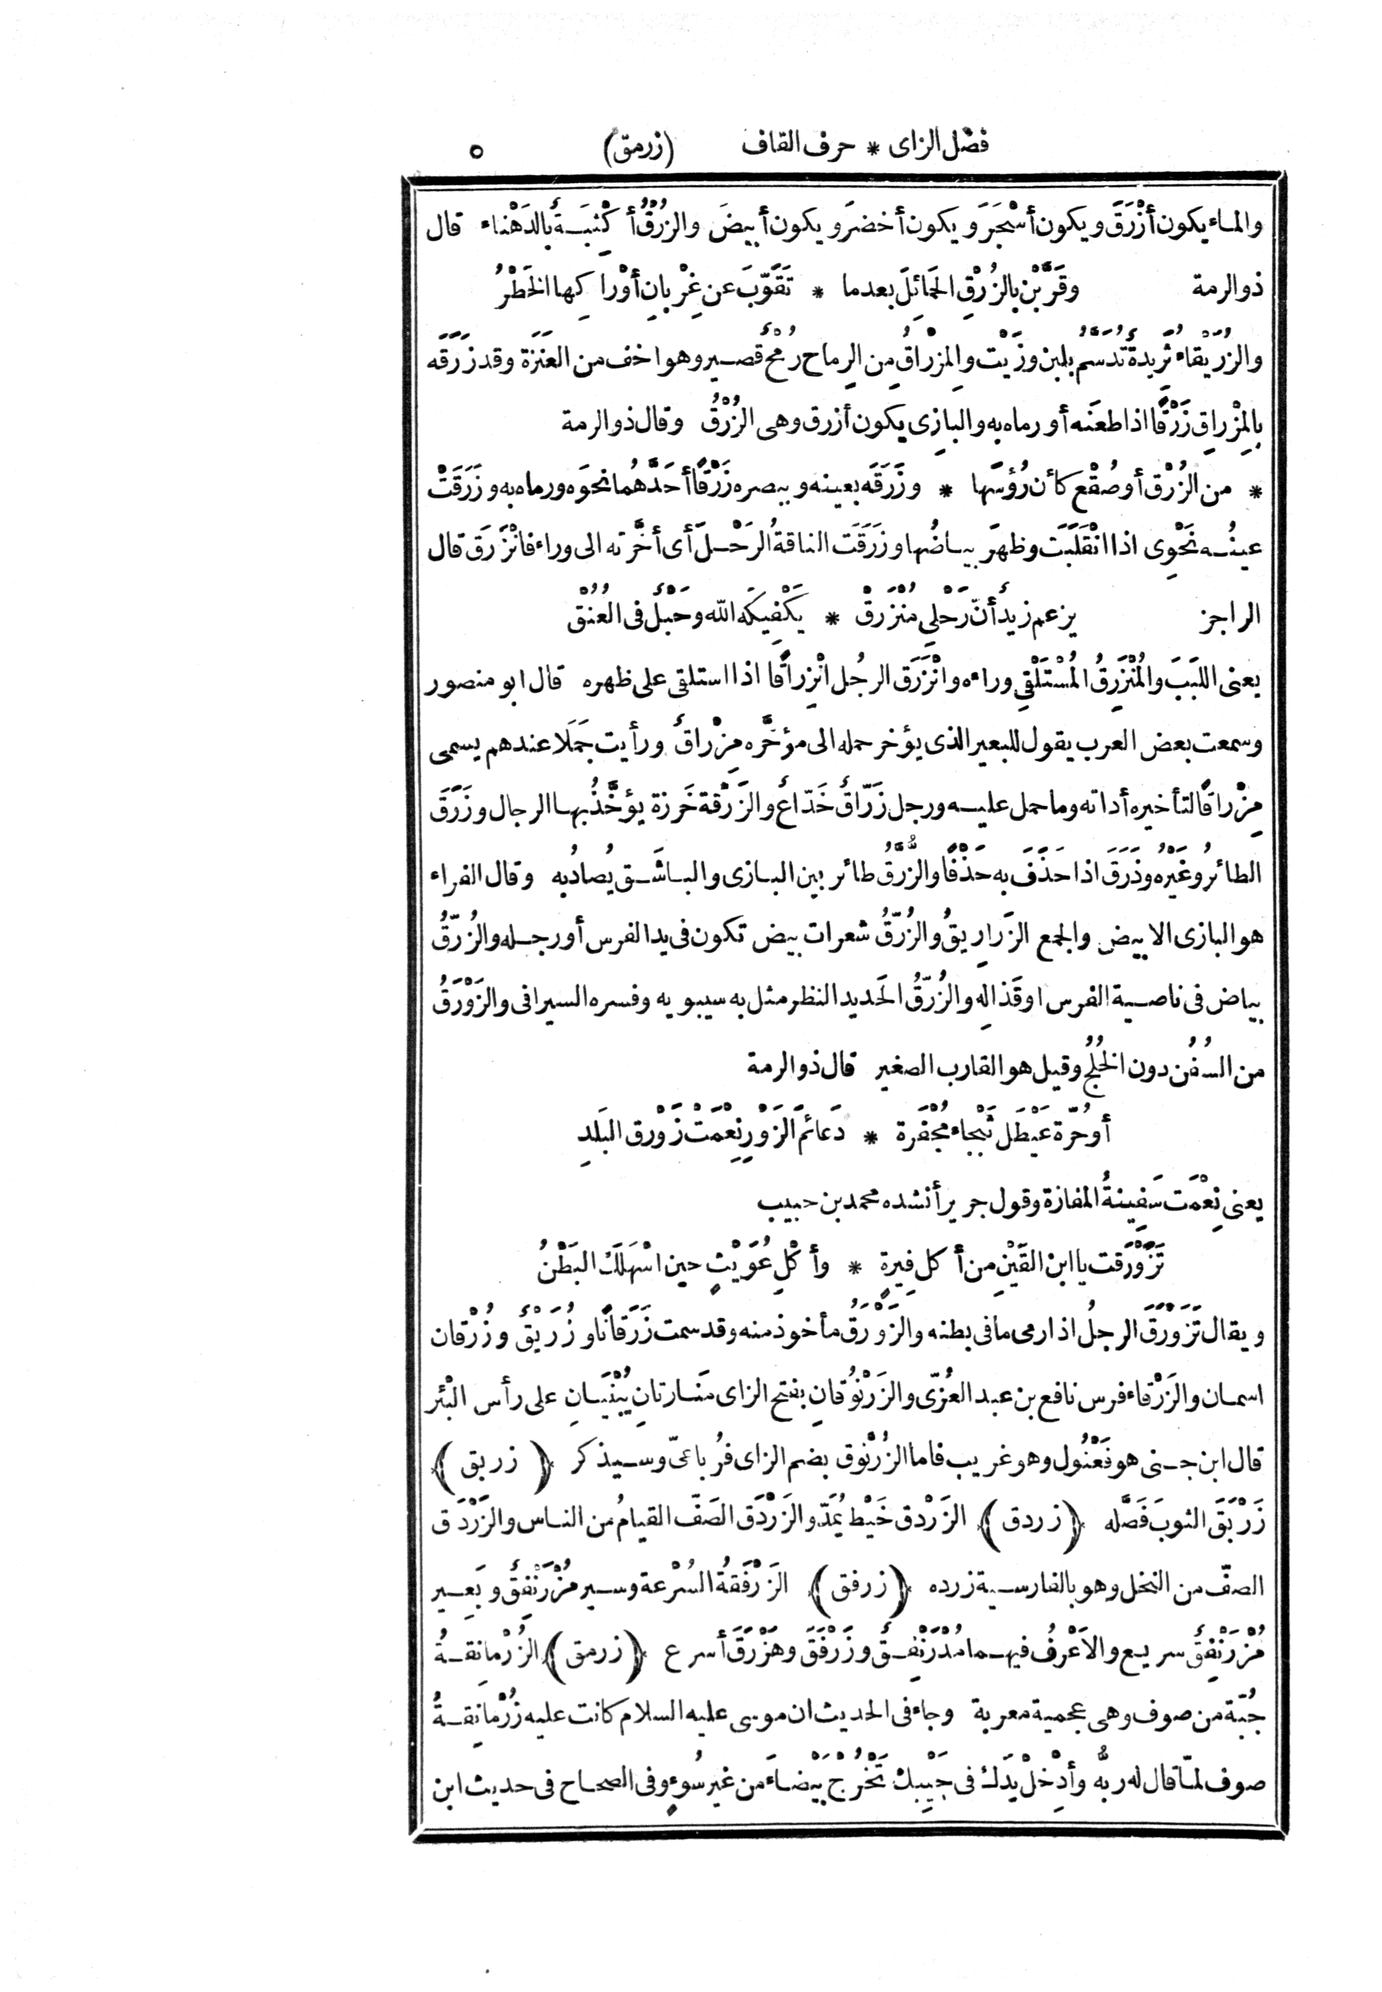 فصل الزاى * حرف القاف (زرمق) ٥
والماء يكون أَزْرَقَ ويكون أَسْجَرَ ويكون أخضرَ ويكون أبيضَ والزُّرْقُ أَكْثِبَةٌ بالدَهْناء قال
ذو الرمة وقَرَّبْنَ بالزُرْقِ الجَمائِلَ بعدما * تَقَوَّبَ عن غِرْبانِ أوْراكِها الخَطْرُ
والزُرَيْقاءُ ثَرِيدةٌ تُدَسَّمُ بلبن وزَيْت والمِزْراقُ من الرِماح رُمْحٌ قصير وهو اخف من العَنَزة وقد زَرَقَه
بالمِزْراق زَرْقًا اذا طعنَه أو رماه به والبازِى يكون أزرق وهى الزُرْقُ وقال ذو الرمة
* من الزُرْق أو صُقْع كأن رُؤسَها * وزَرَقَه بعينه وببصره زَرْقًا أحَدَّهُما نحوَه ورماه به وزَرَقَتْ
عينُه نَحْوِى اذا انْقَلَبَت وظهرَ بياضُها وزَرَقَت الناقةُ الرَحْلَ أى أخَّرته الى وراء فانْزَرَق قال
الراجز يزعم زيدٌ أنّ رَحْلِي مُنْزَرِقْ * يَكْفِيكَه الله وحَبْلٌ فى العُنُقْ
يعنى اللَبَبَ والمُنْزَرِقُ المُسْتَلْقِى وراءه وانْزَرَق الرجُل انْزِراقًا اذا استلقى على ظهره قال ابو منصور
وسمعت بعض العرب يقول للبعير الذى يؤخر حمله الى مؤخَّره مِزْراقٌ ورأيت جَمَلا عندهم يسمى
مِزْراقًا لتأخيره أداته وما حمل عليه ورجل زَرّاقٌ خَدّاعٌ والزَرْقة خَرزة يؤخَّذُ بها الرجال وزَرَقَ
الطائرُ وغَيْرُه وذَرَقَ اذا حَذَفَ به حَذْفًا والزُّرَّقُ طائر بين البازى والباشَق يُصادُ به وقال الفراء
هو البازى الابيض والجمع الزَرارِيقُ والزُرَّقُ شعرات بيض تكون فى يد الفرس أو رجله والزُرَّقُ
بياض فى ناصية الفرس او قَذالِه والزُرَّقُ الحَديد النظر مثل به سيبويه وفسره السيرافى والزَوْرَقُ
من السُفُن دون الخُلُج وقيل هو القارب الصغير قال ذو الرمة
أو حُرّة عَيْطَل ثَبْجاء مُجْفَرة * دَعائمَ الزَوْرِ نِعْمَتْ زَوْرق البَلَدِ
يعنى نِعْمَت سَفِينةُ المفازة وقول جرير أنشده محمد بن حبيب
تَزَوْرَقت يا ابن القَيْنِ من أكل فِيرةٍ * وأكْلِ عُوَيْثٍ حين اسْهَلَكَ البَطْنُ
ويقال تَزَوْرَقَ الرجلُ اذا رمى ما فى بطنه والزَوْرَقُ مأخوذ منه وقد سمت زَرَقانًا وزُرَيْقٌ وزُرْقان
اسمان والزَرْقاء فرس نافع بن عبد العُزّى والزَرْنُوقانِ بفتح الزاى مَنارتانِ يُبْنَيانِ على رأس البْئر
قال ابن جنى هو فَعْنُول وهو غريب فاما الزُرْنوق بضم الزاى فرُباعىّ وسيذكر ﴿زربق﴾
زَرْبَقَ الثوبَ فَصَّله ﴿زردق﴾ الزَرْدق خَيْط يُمَدّ والزَرْدَق الصَفّ القيامُ من الناس والزَرْدَق
الصفّ من النخل وهو بالفارسية زرده ﴿زرفق﴾ الزَرْفَقةُ السُرْعة وسير مُزْرَنْفِقٌ وبَعير
مُزْرَنْفِقٌ سريع والاَعْرفُ فيهما مُدْرَنْفِقٌ وزَرْفَقَ وهَزْرَقَ أسرع ﴿زرمق﴾ الزُرْمانِقةُ
جُبّة من صوف وهى عجمية معربة وجاء فى الحديث ان موسى عليه السلام كانت عليه زُرْمانِقةُ
صوف لمّا قال له ربُّه وأَدْخِلْ يَدَك فى جَيْبِك تَخْرُجْ بَيْضاءَ من غير سُوءٍ وفى الصحاح فى حديث ابن